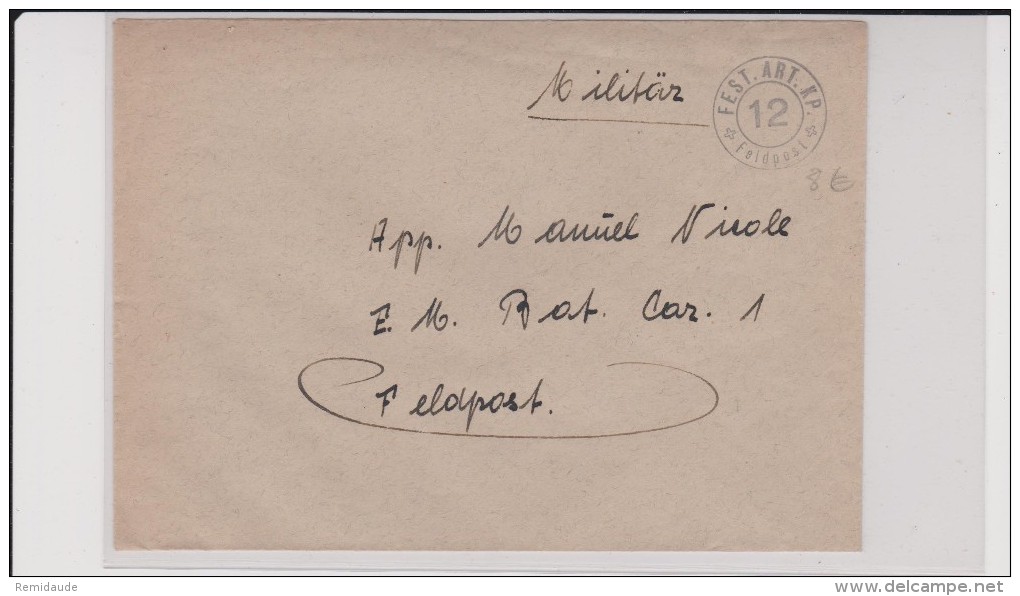 Militär
FEST. ART. KP.
12
Feldpost
8 €
App. Manuel Nicole
E. M. Bat. Car. 1
Feldpost.
Remidaude
www.delcampe.net